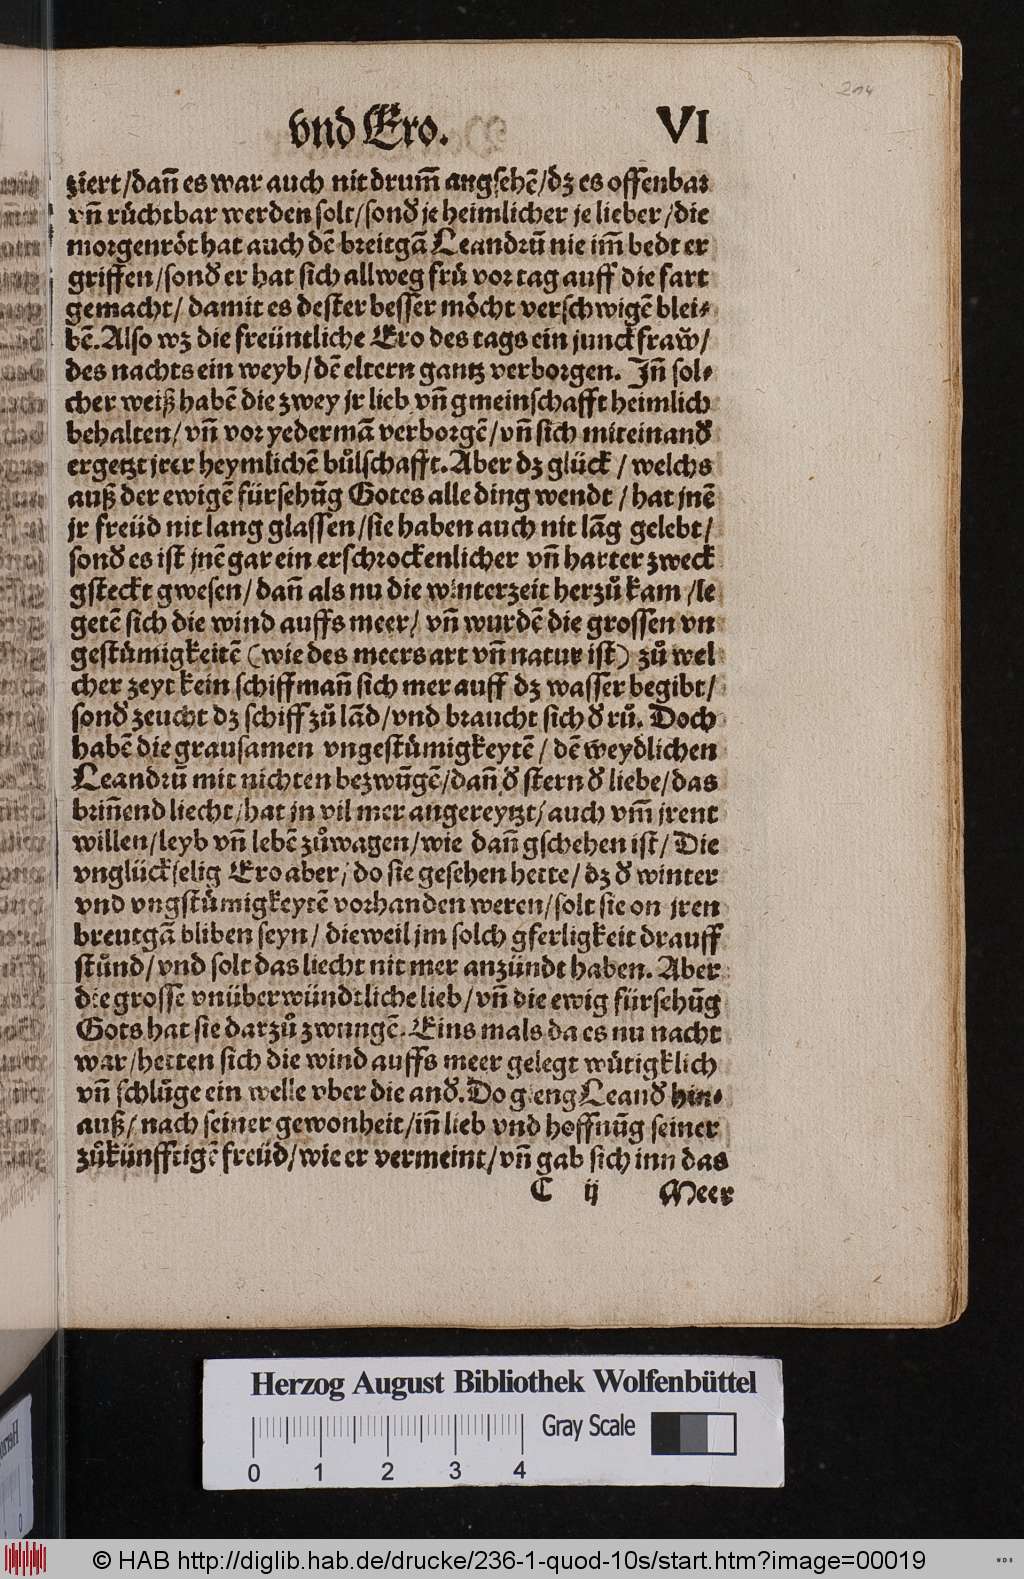 214
vnd Ero. VI
ziert/dañ es war auch nit drum̃ angsehẽ/dz es offenbar
vñ růchtbar werden solt/sonđ je heimlicher je lieber/die
morgenrôt hat auch dẽ breitgã Leandrũ nie im̃ bedt er
griffen/sonđ er hat sich allweg frů vor tag auff die fart
gemacht/ damit es dester besser môcht verschwigẽ blei⸗
bẽ. Also wz die freüntliche Ero des tags ein junckfraw̆/
des nachts ein weyb/dẽ eltern gantz verborgen. Jñ sol⸗
cher weiß habẽ die zwey jr lieb vñ gmeinschafft heimlich
behalten/ vñ vor yedermã verborgẽ/vñ sich miteinanđ
ergetzt jrer heymlichẽ bůlschafft. Aber dz glück / welchs
auß der ewigẽ fürsehũg Gotes alle ding wendt / hat jnẽ
jr freüd nit lang glassen/sie haben auch nit lãg gelebt/
sonđ es ist jnẽ gar ein erschrockenlicher vñ harter zweck
gsteckt gwesen/dañ als nu die winterzeit herzů kam /le
getẽ sich die wind auffs meer/ vñ wurdẽ die grossen vn
gestůmigkeitẽ (wie des meers art vñ natur ist) zů wel
cher zeyt kein schiffmañ sich mer auff dz wasser begibt/
sonđ zeucht dz schiff zů lãd/vnd braucht sich đ rů. Doch
habẽ die grausamen vngestůmigkeytẽ/ dẽ weydlichen
Leandrũ mit nichten bezwũgẽ/dañ đ stern đ liebe/das
briñend liecht/hat jn vil mer angereytzt/ auch vm̃ jrent
willen/leyb vñ lebẽ zůwagen/wie dañ gschehen ist/ Die
vnglückselig Ero aber/ do sie gesehen hette/ dz đ winter
vnd vngstůmigkeytẽ vorhanden weren/solt sie on jren
breutgã bliben seyn/ dieweil jm solch gferligkeit drauff
stůnd/vnd solt das liecht nit mer anzündt haben. Aber
die grosse vnüberwündtliche lieb/vñ die ewig fürsehũg
Gots hat sie darzů zwungẽ. Eins mals da es nu nacht
war/hetten sich die wind auffs meer gelegt wůtigklich
vñ schlũge ein welle vber die anđ. Do gieng Leanđ hin⸗
auß/ nach seiner gewonheit/iñ lieb vnd hoffnũg seiner
zůkünfftigẽ freüd/wie er vermeint/vñ gab sich inn das
C ij Meer
Herzog August Bibliothek Wolfenbüttel
Gray Scale
0 1 2 3 4
© HAB http://diglib.hab.de/drucke/236-1-quod-10s/start.htm?image=00019